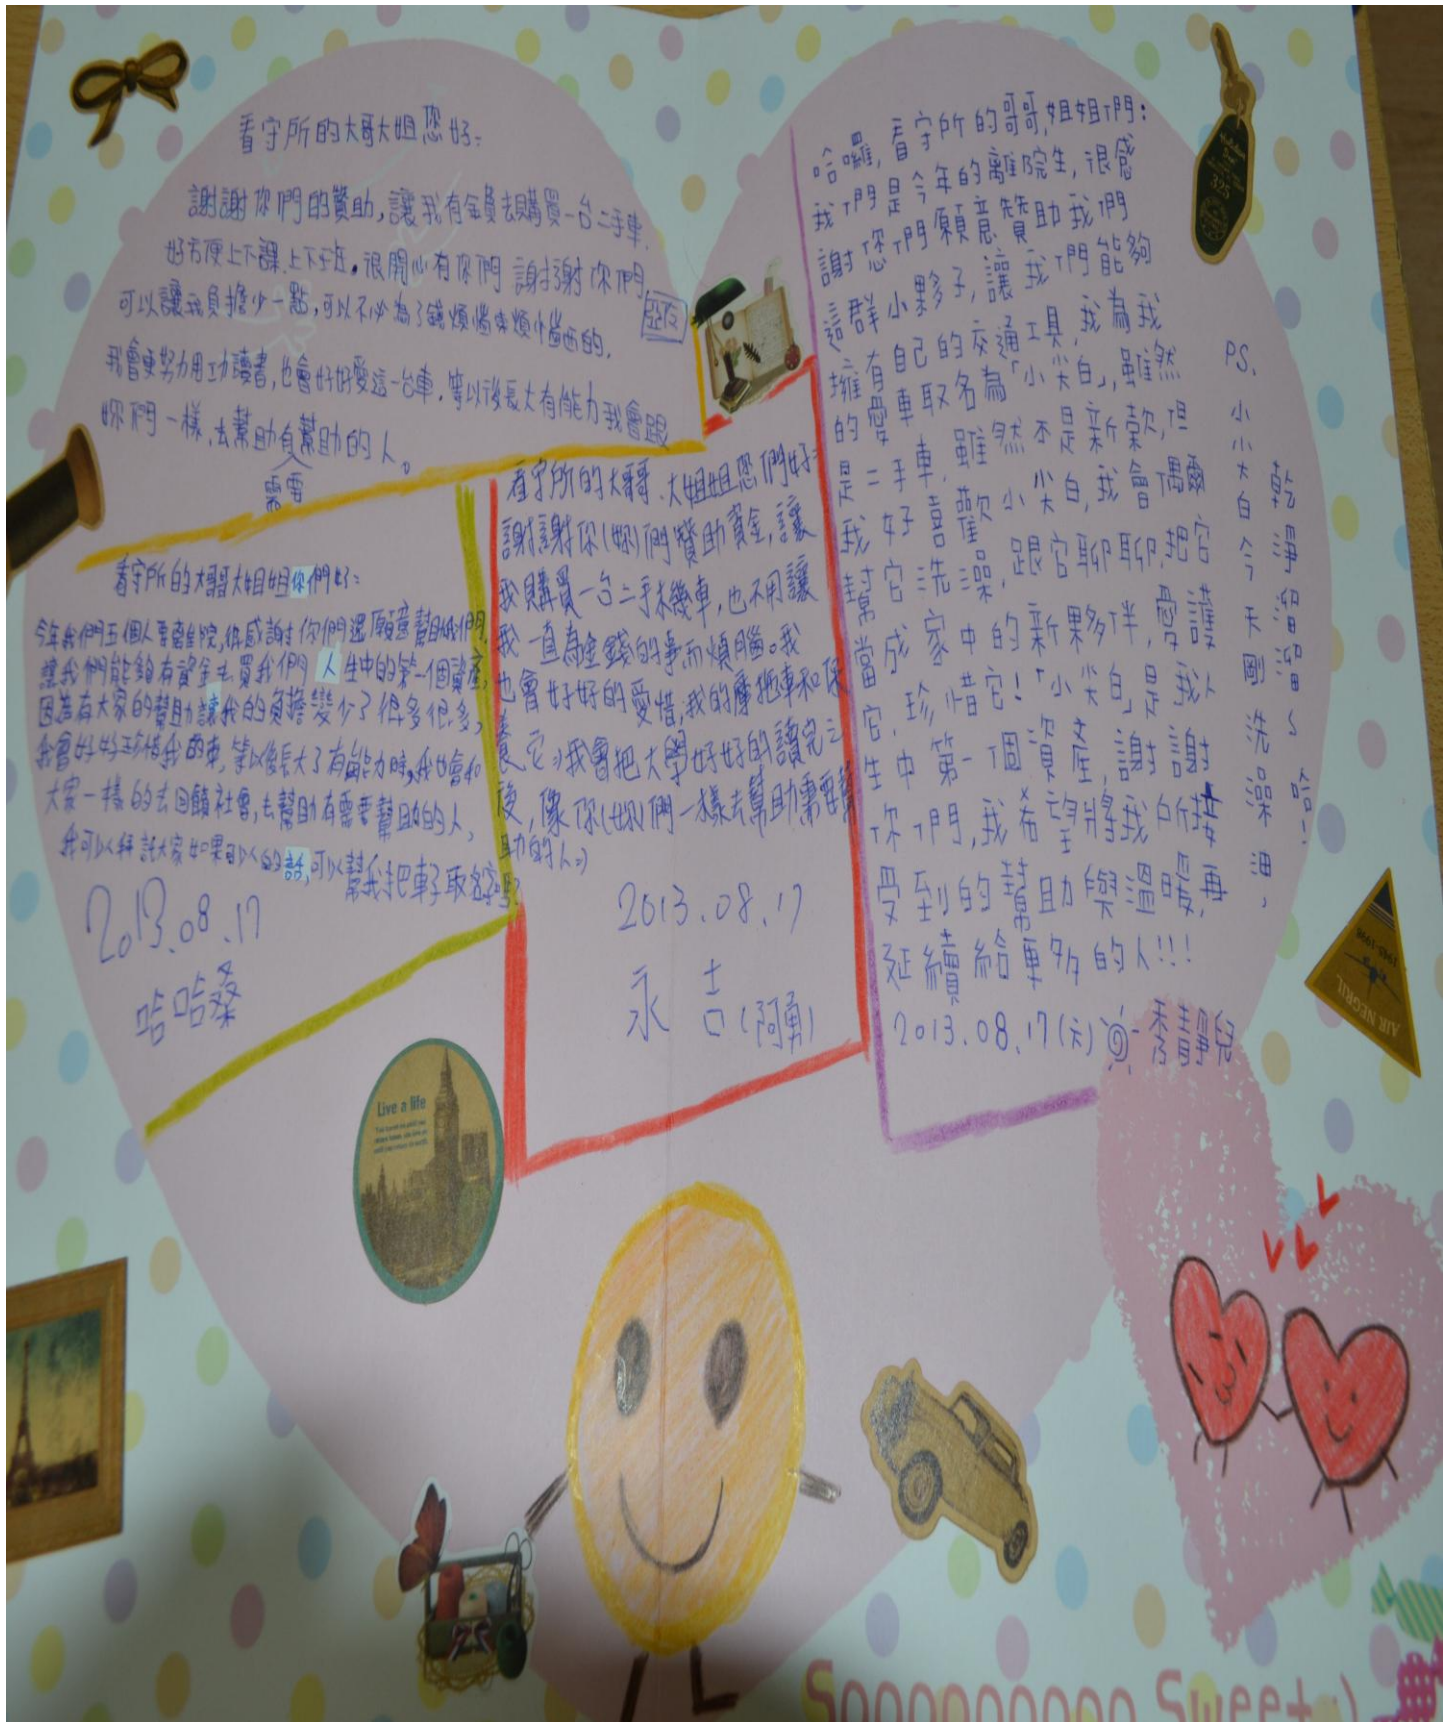 看守所的大哥大姐您好:
謝謝你們的贊助,讓我有金負去購買一台二手車.
好方便上下課.上下班。很開心有你們 謝謝你們
可以讓我負擔少一點,可以不必為了錢煩惱東煩惱西的.
我會更努力用功讀書,也會好好愛這一台車.等以後長大有能力我會跟
妳們一樣.去幫助有需幫助的人。
看守所的大哥哥大姐姐你們好:
今年我們五個人要離院,很感謝你們還願意幫助我們.
讓我們能夠有資金去買我們人生中的第一個資產,
因為有大家的贊助讓我的負擔變少了很多很多,
我會好好珍惜我的車,等以後長大了有能力時,我也會和
大家一樣的去回饋社會,去幫助有需要幫助的人,
我可以拜託大家如果可以的話,可以幫我把車子取名字嗎?
2013.08.17
哈哈桑
看守所的大哥哥、大姐姐您們好:
謝謝你(妳)們贊助資金,讓
我購買一台二手機車,也不用讓
我一直為金錢的事而煩腦。我
也會好好的愛惜,我的摩拖車和保
養它:)我會把大學好好的讀完之
後,像你(妳)們一樣去幫助需要幫
助的人:)
2013.08.17
永吉(阿勇)
哈囉,看守所的哥哥,姐姐們:
我們是今年的離院生,很感
謝您們願意贊助我們
這群小夥子,讓我們能夠
擁有自己的交通工具,我為我
的愛車取名為「小尖白」,雖然
是二手車,雖然不是新款,但
我好喜歡小尖白,我會偶爾
幫它洗澡,跟它聊聊,把它
當成家中的新夥伴,愛護
它.珍惜它!「小尖白」是我人
生中第一個資產,謝謝
你們,我希望將我所接
受到的幫助與溫暖,再
延續給更多的人!!!
2013.08.17(六)
PS.小小尖白今天剛洗澡油,
乾淨溜溜S哈!
Live a life
325
AIR NEGRIL
Soooooooooo Sweet :)